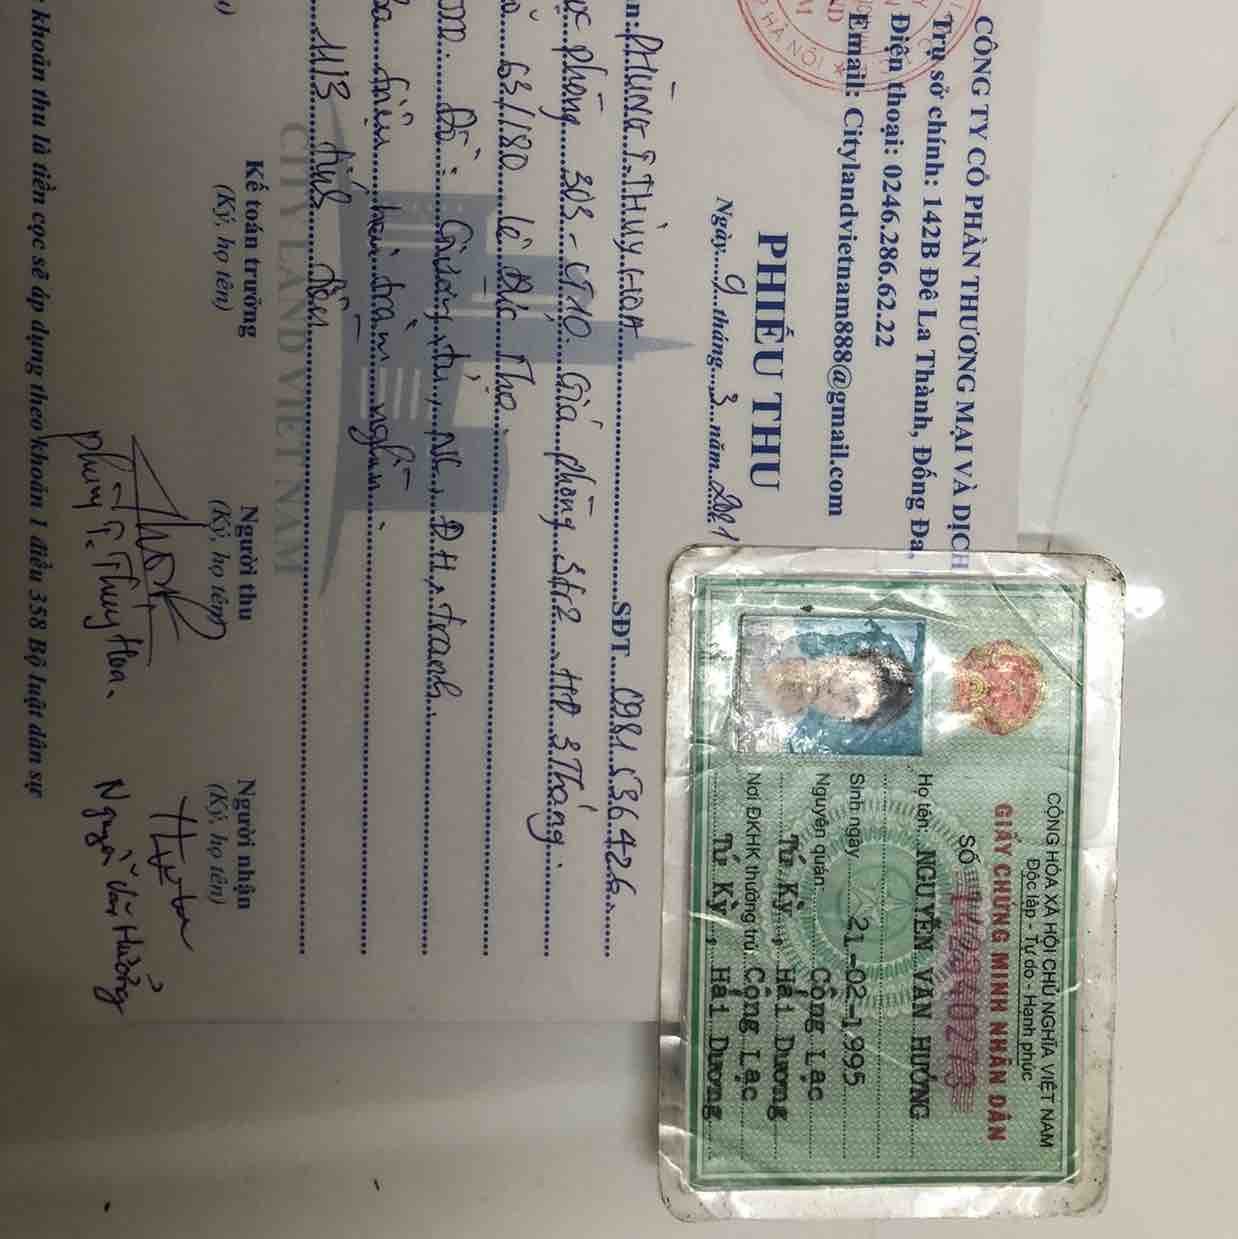 CÔNG TY CỔ PHẦN THƯƠNG MẠI VÀ DỊCH
Trụ sở chính: 142B Đê La Thành, Đống Đa,
Điện thoại: 0246.286.62.22
Email: Citylandvietnam888@gmail.com
HÀ NỘI
PHIẾU THU
Ngày 9 tháng 3 năm 2021
n: PHÙNG T. THÙY HOA SĐT 0981 536426
phòng 303 - CT10. Giá phòng 3tr2 HĐ 3 Tháng.
63/180 lê Đức Thọ.
Đồ: Giường, tủ, NL, ĐH, tranh.
triệu hai trăm nghìn.
11/3 tính tiền
CITY LAND VIET NAM
Kế toán trưởng
(Ký, họ tên)
Người thu
(Ký, họ tên)
Phùng T. Thùy Hoa.
Người nhận
(Ký, họ tên)
Nguyễn Văn Hưởng
khoản thu là tiền cọc sẽ áp dụng theo khoản 1 điều 358 Bộ luật dân sự
CỘNG HÒA XÃ HỘI CHỦ NGHĨA VIỆT NAM
Độc lập - Tự do - Hạnh phúc
GIẤY CHỨNG MINH NHÂN DÂN
SỐ
Họ tên: NGUYỄN VĂN HƯỞNG
Sinh ngày 21-02-1995
Nguyên quán: Cộng Lạc
Tứ Kỳ, Hải Dương
Nơi ĐKHK thường trú Cộng Lạc
Tứ Kỳ, Hải Dương